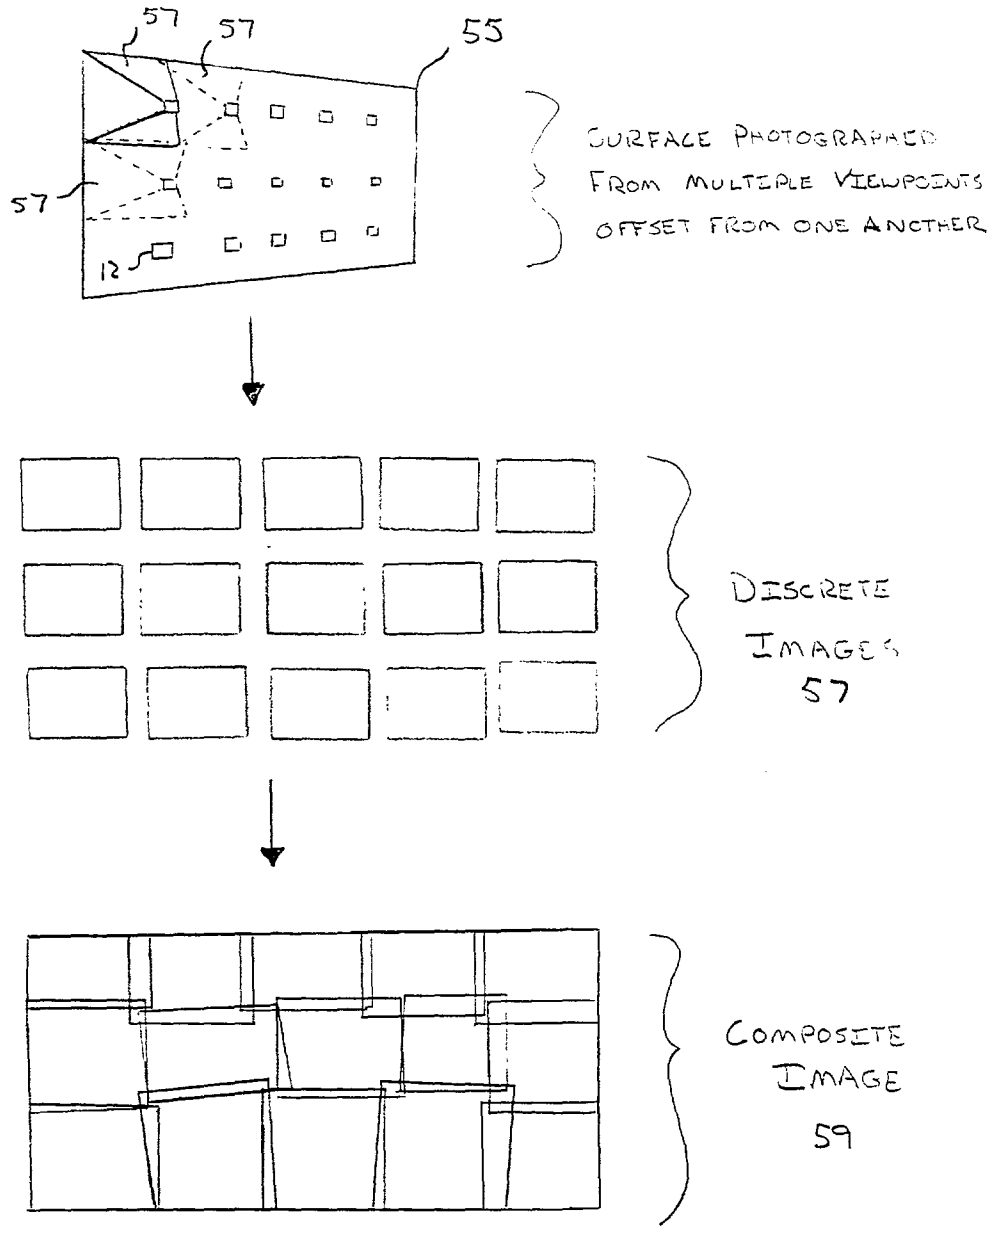 57
57
55
SURFACE PHOTOGRAPHED
FROM MULTIPLE VIEWPOINTS
OFFSET FROM ONE ANOTHER
57
12
DISCRETE
IMAGES
57
COMPOSITE
IMAGE
59